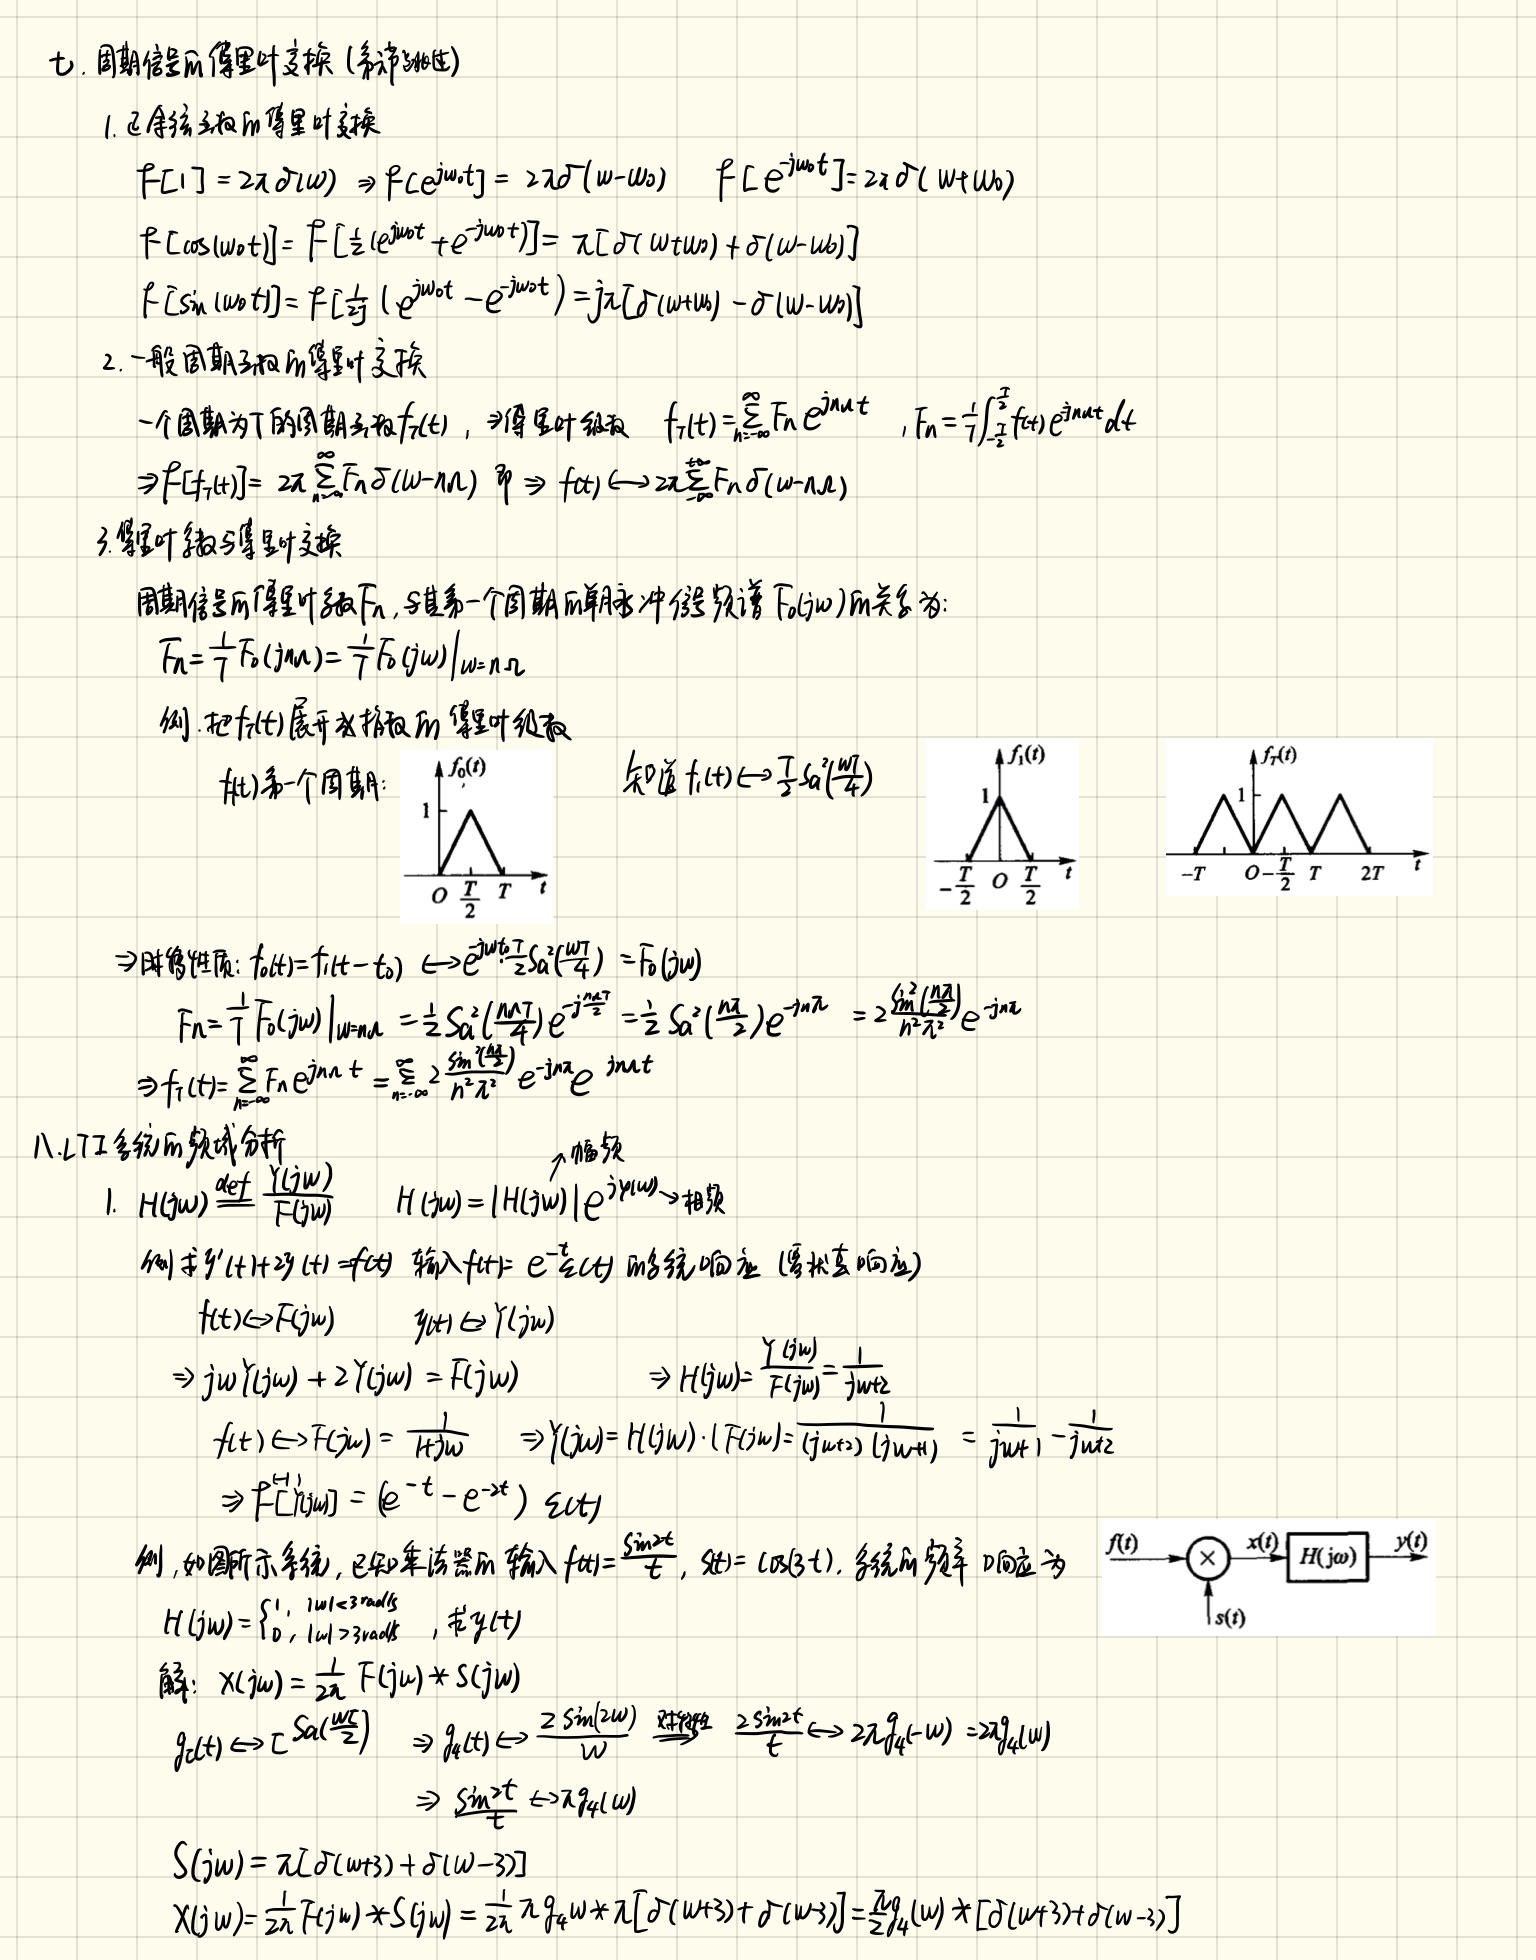 七. 周期信号的傅里叶变换（
1. 正余弦函数的傅里叶变换
F[1] = 2πδ(ω) ⇒ F[e^{jω₀t}] = 2πδ(ω-ω₀)   F[e^{-jω₀t}] = 2πδ(ω+ω₀)
F[cos(ω₀t)] = F[½(e^{jω₀t} + e^{-jω₀t})] = π[δ(ω+ω₀) + δ(ω-ω₀)]
F[sin(ω₀t)] = F[1/2j (e^{jω₀t} - e^{-jω₀t}) = jπ[δ(ω+ω₀) - δ(ω-ω₀)]
2. 一般周期函数的傅里叶变换
一个周期为T的周期函数f_T(t), ⇒傅里叶级数 f_T(t) = Σ_{n=-∞}^{∞} Fn e^{jnΩt}, Fn = 1/T ∫_{-T/2}^{T/2} f(t) e^{-jnΩt} dt
⇒ F[f_T(t)] = 2π Σ_{n=-∞}^{∞} Fn δ(ω-nΩ) 即 ⇒ f(t) ↔ 2π Σ_{-∞}^{+∞} Fn δ(ω-nΩ)
3. 傅里叶系数与傅里叶变换
周期信号的傅里叶系数Fn, 与其第一个周期的单脉冲信号频谱 F₀(jω)的关系为:
Fn = 1/T F₀(jnΩ) = 1/T F₀(jω)|_{ω=nΩ}
例. 把f_T(t)展开成指数的傅里叶级数
f(t)第一个周期:
f₀(t)
1
O T/2 T t
知道 f₁(t) ↔ T/2 Sa²(ωT/4)
f₁(t)
1
-T/2 O T/2 t
f_T(t)
1
-T O -T/2 T 2T t
⇒时移性质: f₀(t) = f₁(t-t₀) ↔ e^{-jωt₀}·T/2 Sa²(ωT/4) = F₀(jω)
Fn = 1/T F₀(jω)|_{ω=nΩ} = ½ Sa²(nΩT/4) e^{-jnΩT/2} = ½ Sa²(nπ/2) e^{-jnπ} = 2 sin²(nπ/2)/n²π² e^{-jnπ}
⇒ f_T(t) = Σ_{n=-∞}^{∞} Fn e^{jnΩt} = Σ_{n=-∞}^{∞} 2 sin²(nπ/2)/n²π² e^{-jnπ} e^{jnΩt}
八. LTI系统的频域分析
1. H(jω) def= Y(jω)/F(jω)   H(jω) = |H(jω)| e^{jφ(ω)} →相频
↗幅频
例 求y'(t)+2y(t)=f(t) 输入f(t)= e^{-t}ε(t) 的系统响应 (零状态响应)
f(t) ↔ F(jω)   y(t) ↔ Y(jω)
⇒ jωY(jω) + 2Y(jω) = F(jω)   ⇒ H(jω) = Y(jω)/F(jω) = 1/(jω+2)
f(t) ↔ F(jω) = 1/(1+jω)   ⇒ Y(jω) = H(jω)·(F(jω) = 1/((jω+2)(jω+1)) = 1/(jω+1) - 1/(jω+2)
⇒ F^{(-1)}[Y(jω)] = (e^{-t} - e^{-2t}) ε(t)
例, 如图所示系统, 已知乘法器的输入 f(t) = sin2t/t, s(t) = cos(3t), 系统的频率响应为
f(t) × x(t) H(jω) y(t)
s(t)
H(jω) = {1, |ω|<3rad/s
0, |ω|>3rad/s , 求y(t)
解: X(jω) = 1/2π F(jω) * S(jω)
g_τ(t) ↔ τ Sa(ωτ/2)   ⇒ g₄(t) ↔ 2sin(2ω)/ω   对称性⇒ 2sin2t/t ↔ 2πg₄(-ω) = 2πg₄(ω)
⇒ sin2t/t ↔ πg₄(ω)
S(jω) = π[δ(ω+3) + δ(ω-3)]
X(jω) = 1/2π F(jω) * S(jω) = 1/2π πg₄ω * π[δ(ω+3) + δ(ω-3)] = π/2 g₄(ω) * [δ(ω+3)+δ(ω-3)]